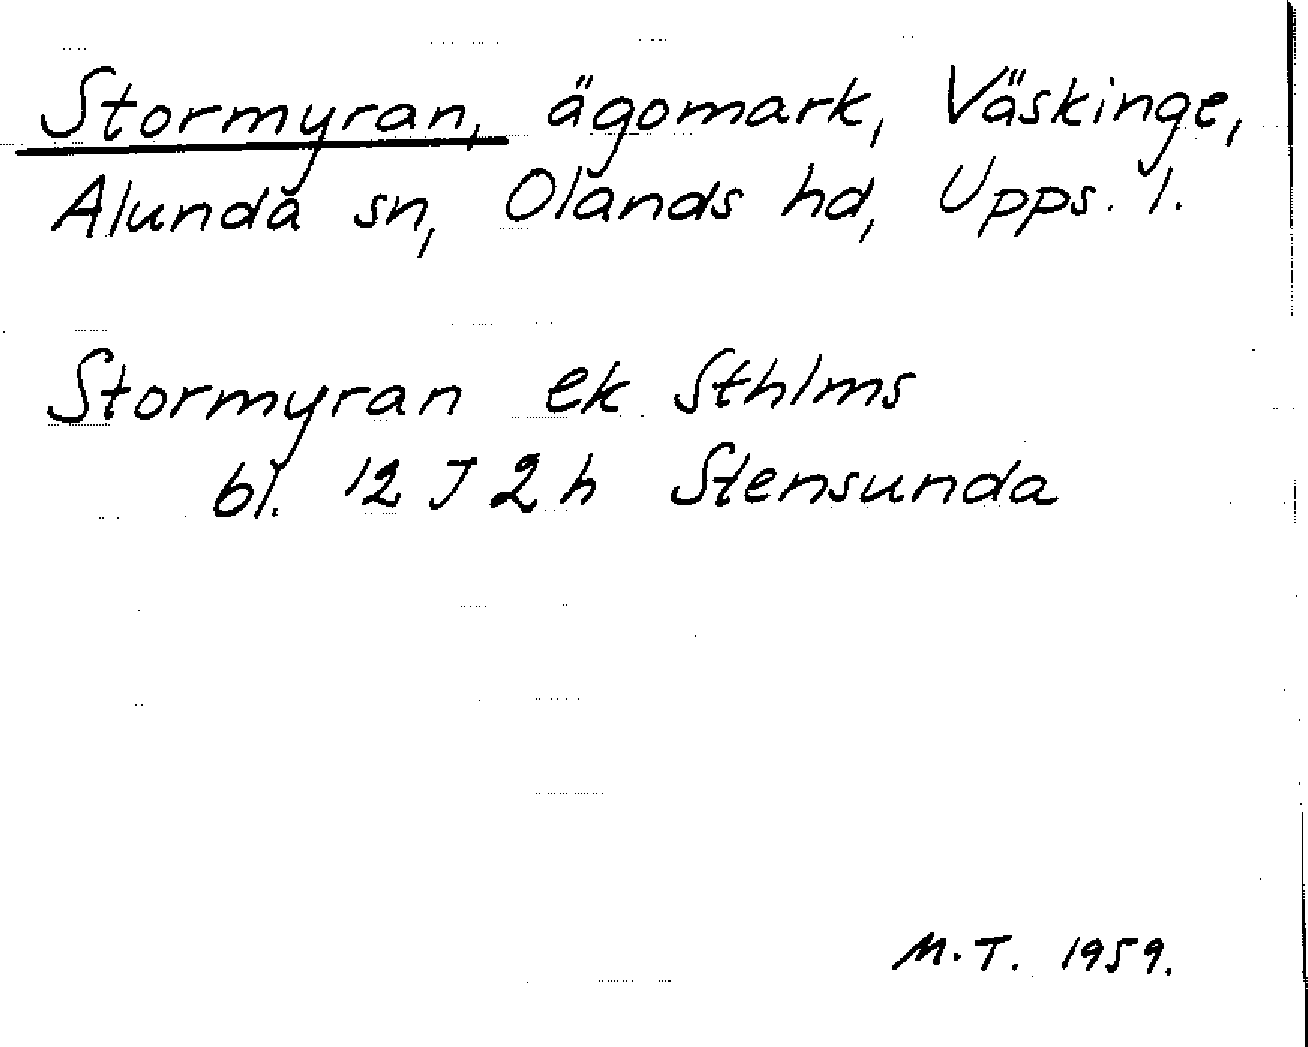 Stormyran, ägomark, Väskinge,
Alunda sn, Olands hd, Upps. l.
Stormyran ek Sthlms
bl. 12 J 2 h Stensunda
M.T. 1959.